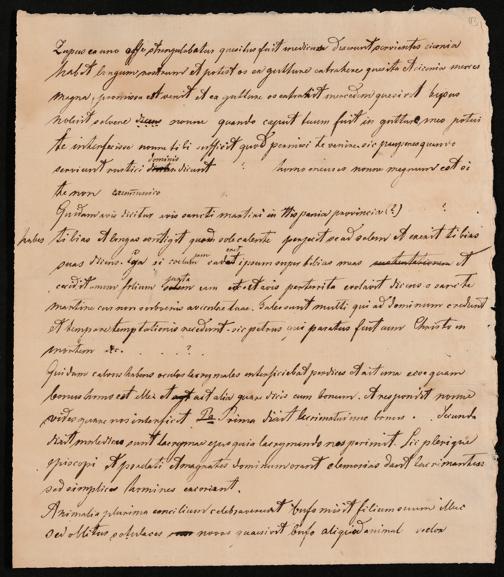 Lupus ex uno osse strangulabatur quaesitus fuit medicus dixerunt servientes ciconia
habet longum rostrum et potest os ex gutture extrahere quaesita est ciconia merces
magna promissa est venit et ex gutture os extraxit mercedem quaesivit lupus
noluit solvere dicens nonne quando caput tuum fuit in gutture meo potui
te interficere nonne tibi sufficit quod permisi te vivere. sic pauperes quando
serviunt rustici dominis dicunt homo meus es nonne magnum est si
te non excommunico
Quidam avis dicitur avis sancti martini in Hispania provincia (?)
habens tibias et longas contigit quod sole calente projecit se ad solem et erexit tibias
suas dicens. si coelum caderet ipsum super tibias meas sustentarem et
cecidit unum folium juxta eam et avis perterrita exclavit dicens o sancte
martine cur non succurris aviculae tuae. Tales sunt multi qui ad dominum credunt
et tempore temptationis recedunt. sic petrus qui paratus fuit cum Christo in
mortem etc. . . . ?
Quidam calvus habens oculos lacrymales interficiebat perdices et ait una esse quam
bonus homo est ille et ait alia quare dicis eum bonum. et respondit nonne
vides quare nos interficit Prima dixit lacrimatur homo bonus. Secunda
dixit maledicae sunt lacrymae ejus quia lacrymando nos perimit. Sic plerique
episcopi et praelati et magnates dominum orant elemosinas dant lacrimantes
sed simplices homines excoriant.
Animalia plurima concilium celebraverunt bufo misit filium suum illuc
sed oblitus sotulares novos quaesivit bufo aliquod animal velox